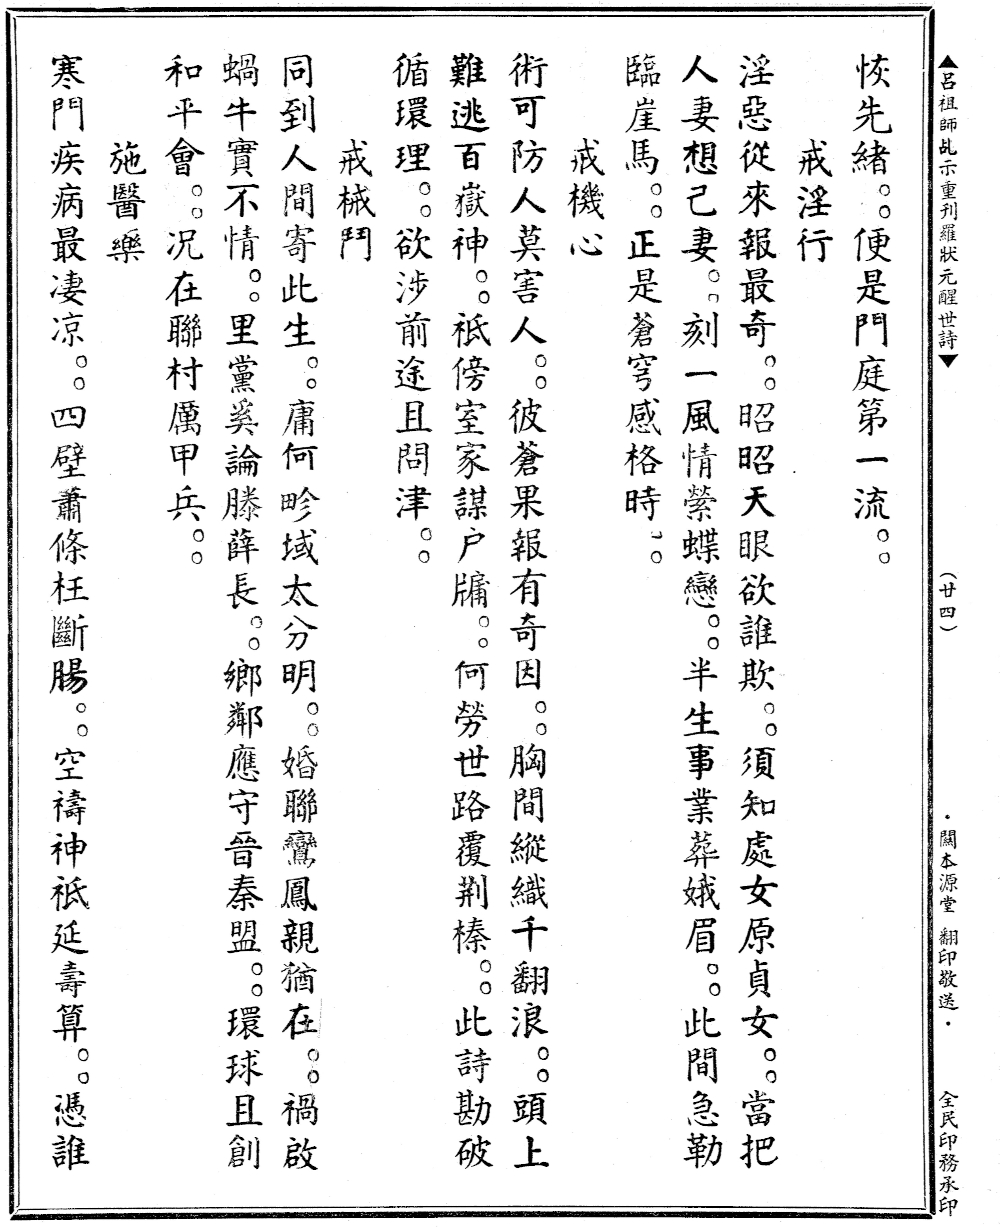 ▲呂祖師乩示重刊羅狀元醒世詩▼　(廿四)　・關本源堂　翻印敬送・　全民印務承印
恢先緒。。便是門庭第一流。。
戒淫行
淫惡從來報最奇。。昭昭天眼欲誰欺。。須知處女原貞女。。當把
人妻想己妻。。刻一風情縈蝶戀。。半生事業葬娥眉。。此間急勒
臨崖馬。。正是蒼穹感格時。。
戒機心
術可防人莫害人。。彼蒼果報有奇因。。胸間縱織千翻浪。。頭上
難逃百獄神。。祇傍室家謀户牖。。何勞世路覆荆榛。。此詩勘破
循環理。。欲涉前途且問津。。
戒械鬥
同到人間寄此生。。庸何畛域太分明。。婚聯鸞鳳親猶在。。禍啟
蝸牛實不情。。里黨奚論滕薛長。。鄉鄰應守晉秦盟。。環球且創
和平會。。况在聯村厲甲兵。。
施醫藥
寒門疾病最凄凉。。四壁蕭條枉斷腸。。空禱神祇延壽算。。憑誰